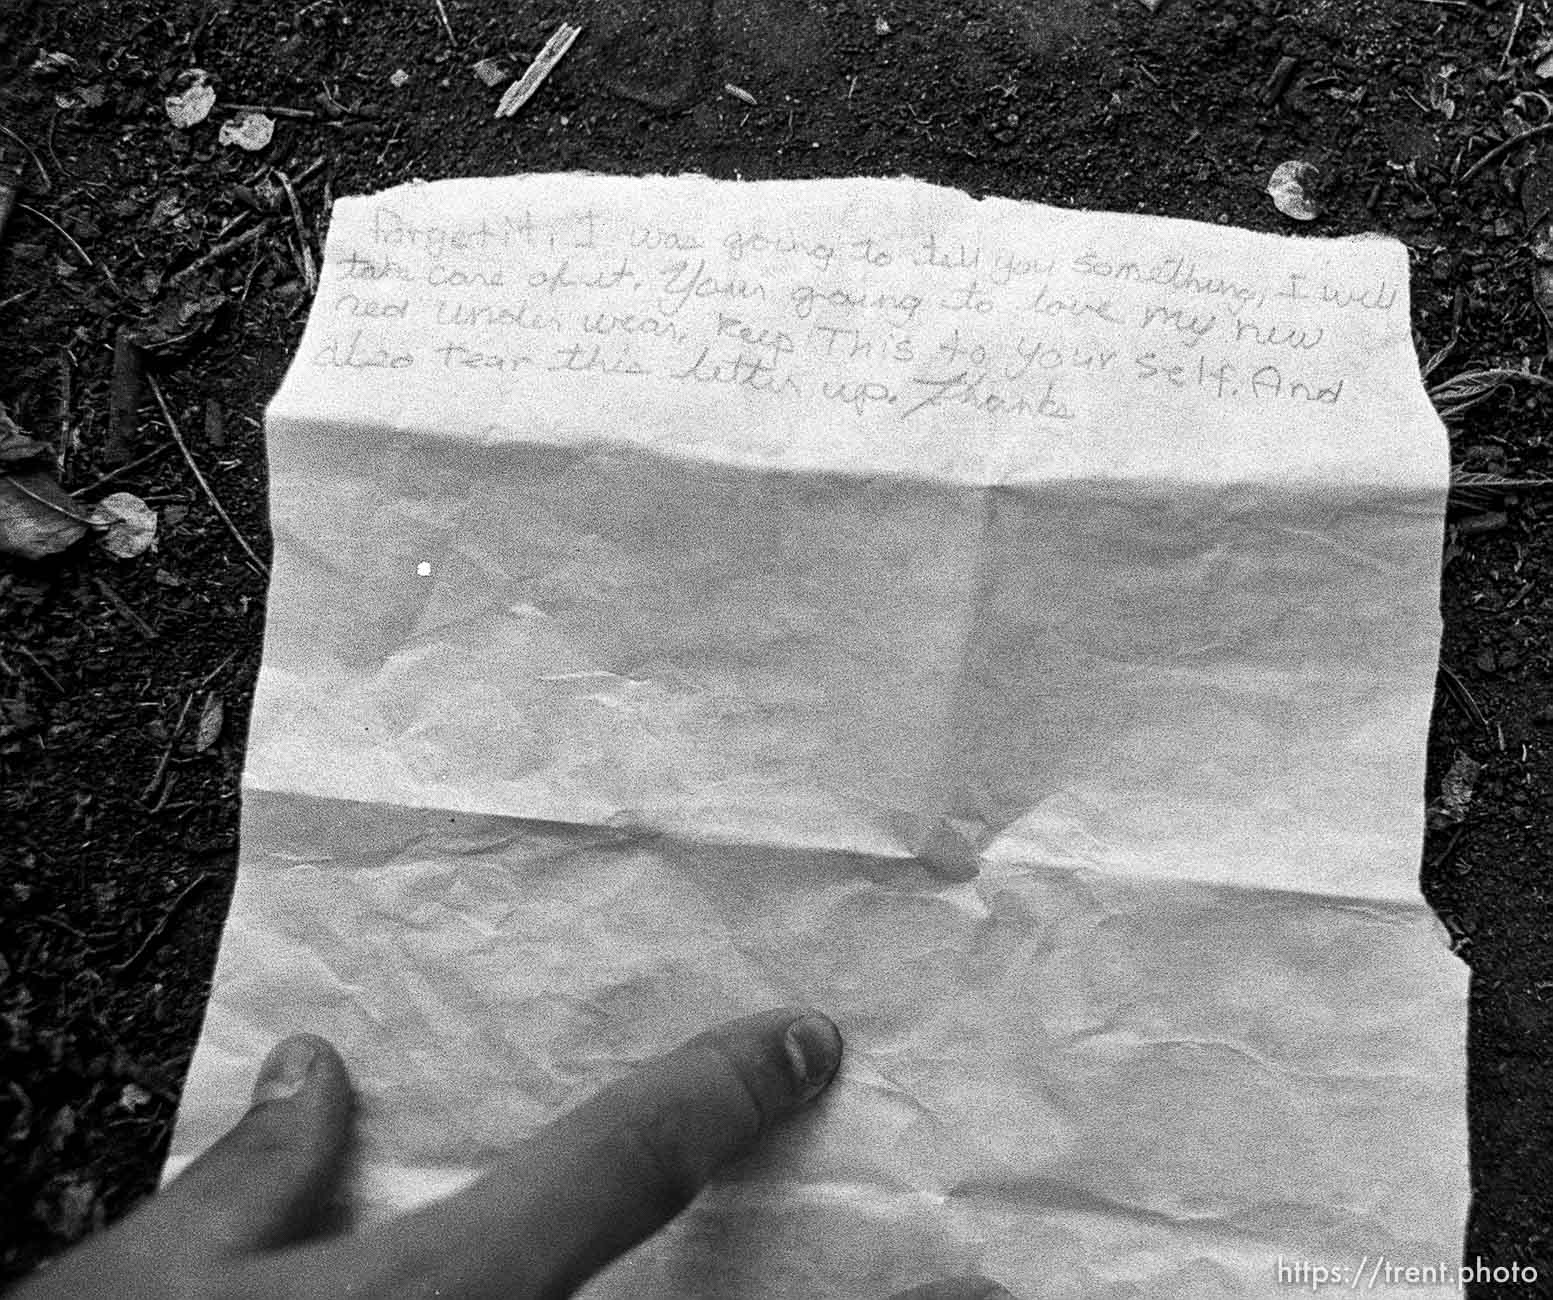 Forget it, I was going to tell you something, I will
take care of it. Your going to love my new
red under wear, keep This to your self. And
also tear this letter up. Thanks
https://trent.photo